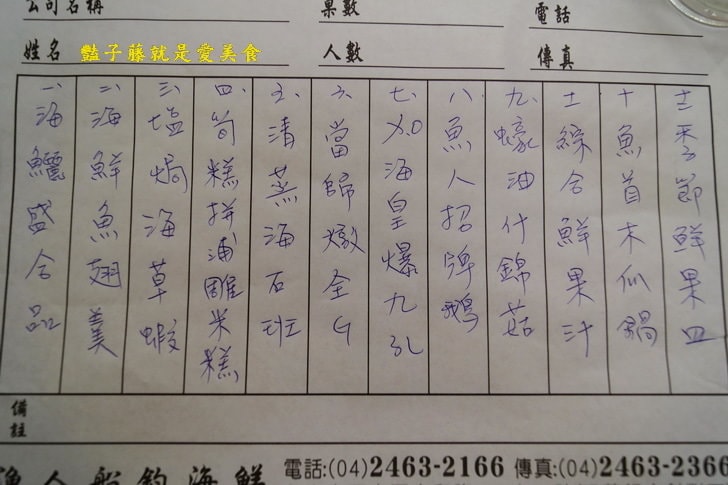 公司名稱 桌數 電話
姓名 豔子藤就是愛美食 人數 傳真
一、海鱺盛合品
二、海鮮魚翅羹
三、塩焗海草蝦
四、筍糕拼浦雕米糕
五、清蒸海石班
六、當歸燉全G
七、X.O海皇爆九孔
八、魚人招牌鵝
九、蠔油什錦菇
十一綜合鮮果汁
十、魚首木瓜鍋
十二季節鮮果皿
備註
漁人船釣海鮮 電話:(04)2463-2166 傳真:(04)2463-2366